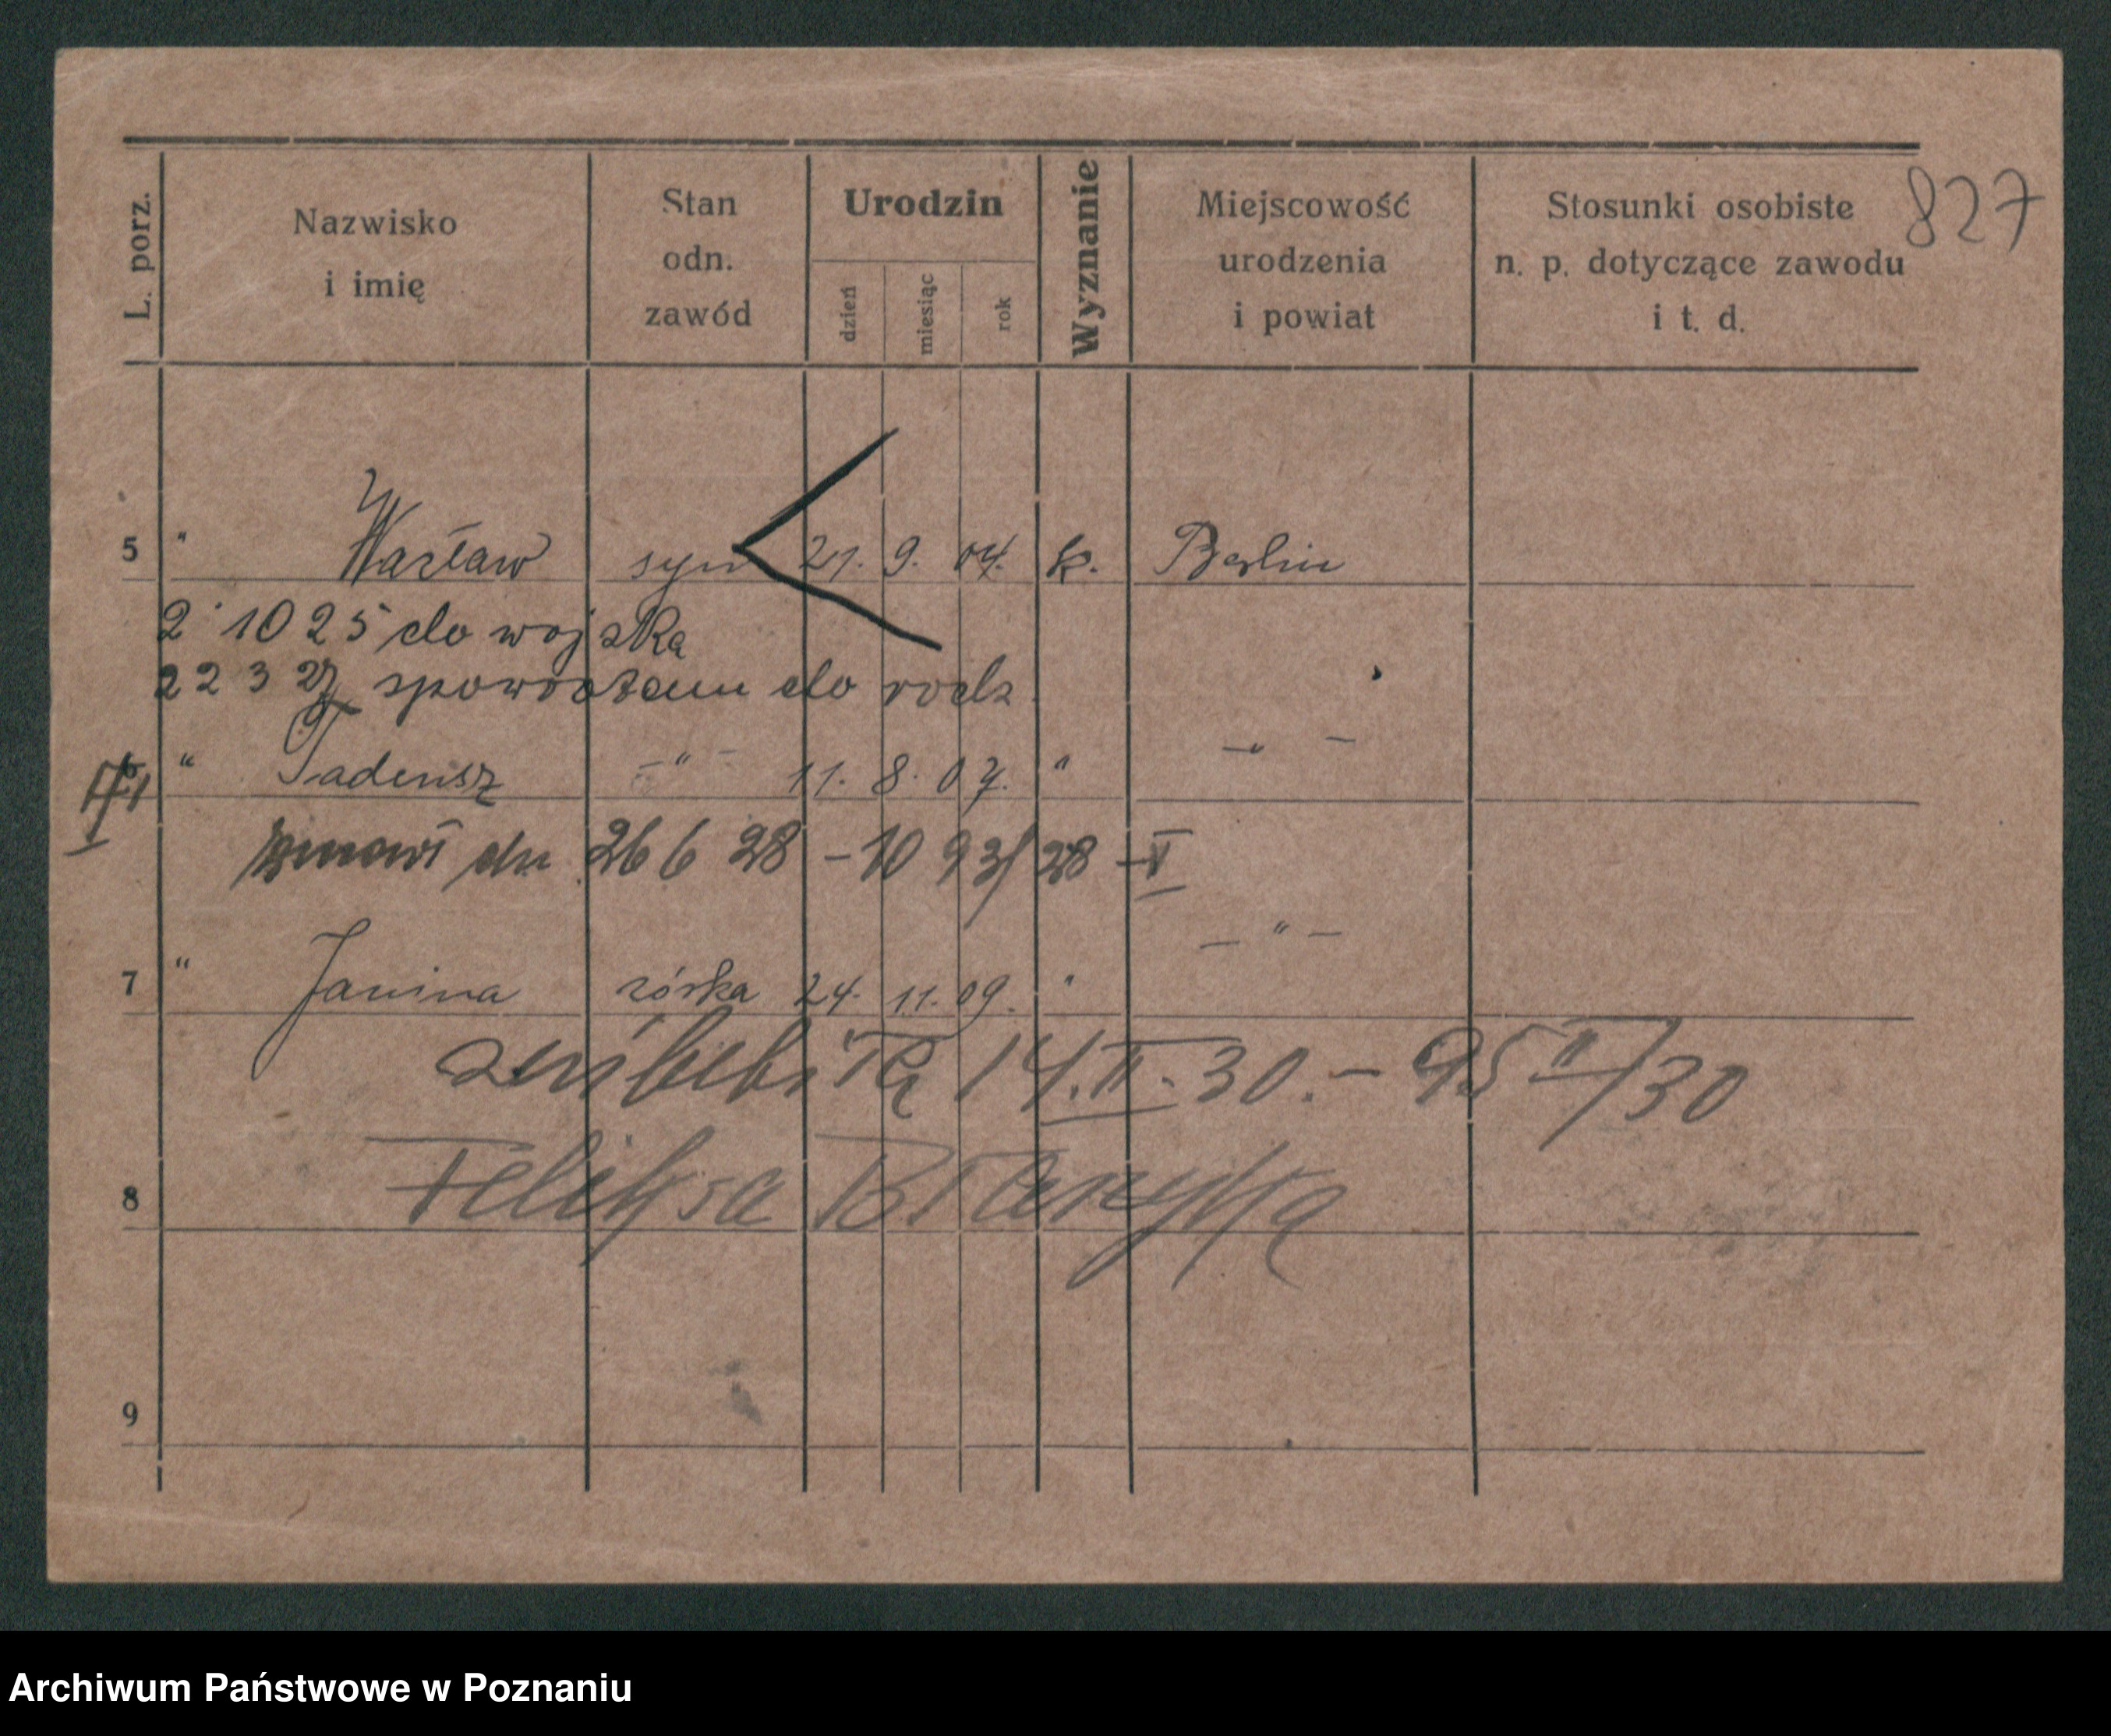 827
L. porz.
Nazwisko i imię
Stan odn. zawód
Urodzin
dzień
miesiąc
rok
Wyznanie
Miejscowość urodzenia i powiat
Stosunki osobiste n. p. dotyczące zawodu i t. d.
5 " Wacław syn 21. 9. 04. k. Berlin
2 10 25 do wojska
22 3 27 spowrotem do rodz.
6 " Tadeusz -"- 11. 8. 07. " -"-
dn 26 6 28 - 10 93/28 - V
7 " Janina córka 24. 11. 09. " -"-
14.II.30. - 95 II/30
Feliksa
8
9
Archiwum Państwowe w Poznaniu